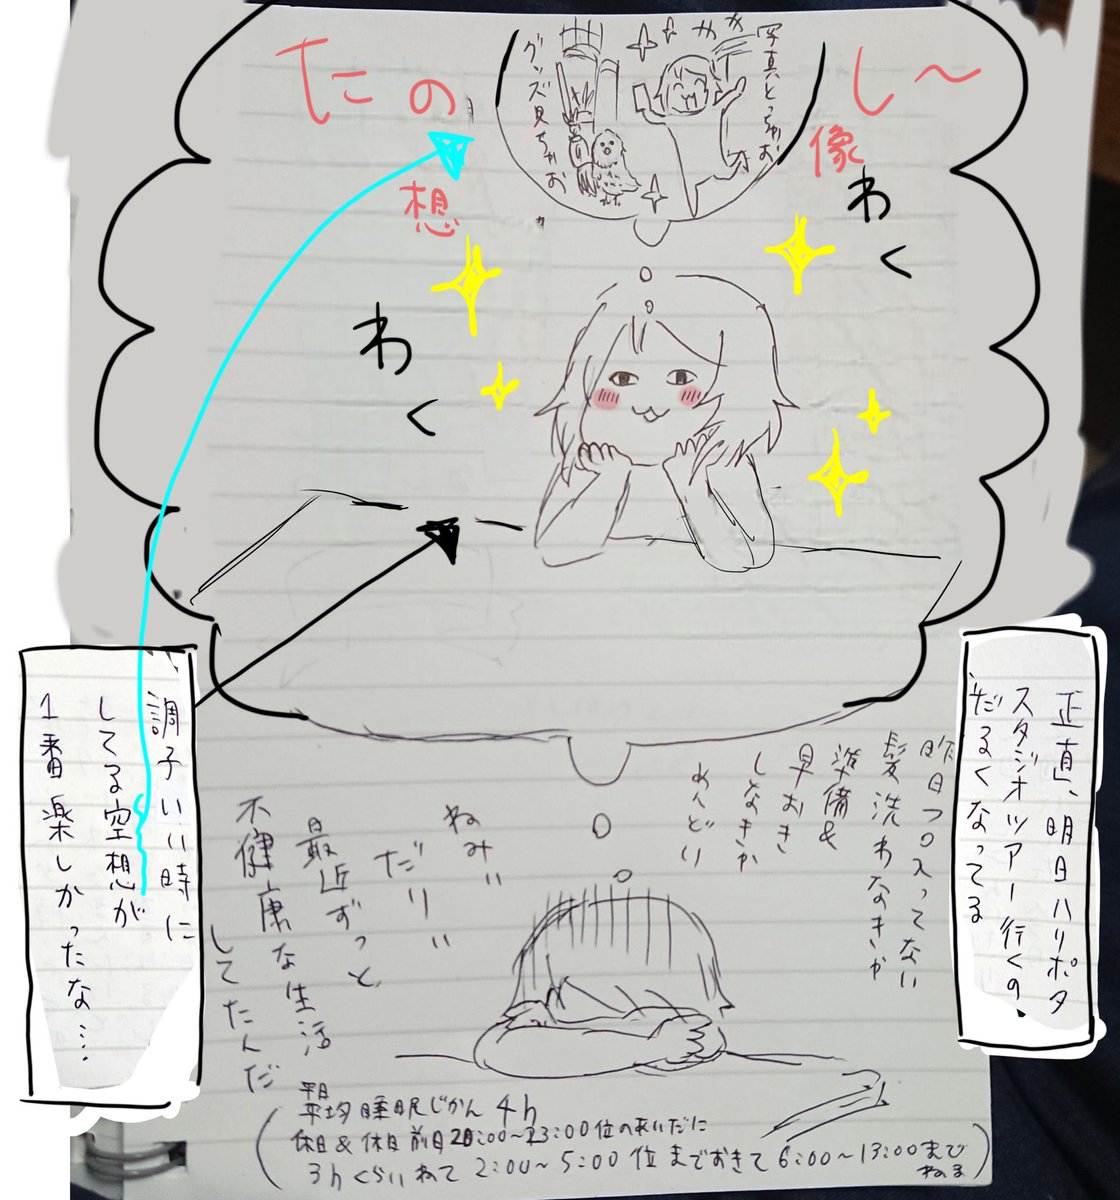 たのし〜
想像
写真とっちゃお
グッズ見ちゃお
わく
わく
正直、明日ハリポタ
スタジオツアー行くの
だるくなってる
昨日フロ入ってない
髪洗わなきゃ
準備&
早おき
しなきゃ
めんどい
ねみぃ
だりぃ
最近ずっと
不健康な生活
してたんだ
調子いい時に
してる空想が
1番楽しかったな…
平日
平均睡眠じかん4h
休日&休日前日20:00〜23:00位のあいだに
3hくらいねて2:00〜5:00位までおきて6:00〜13:00まで
ねる